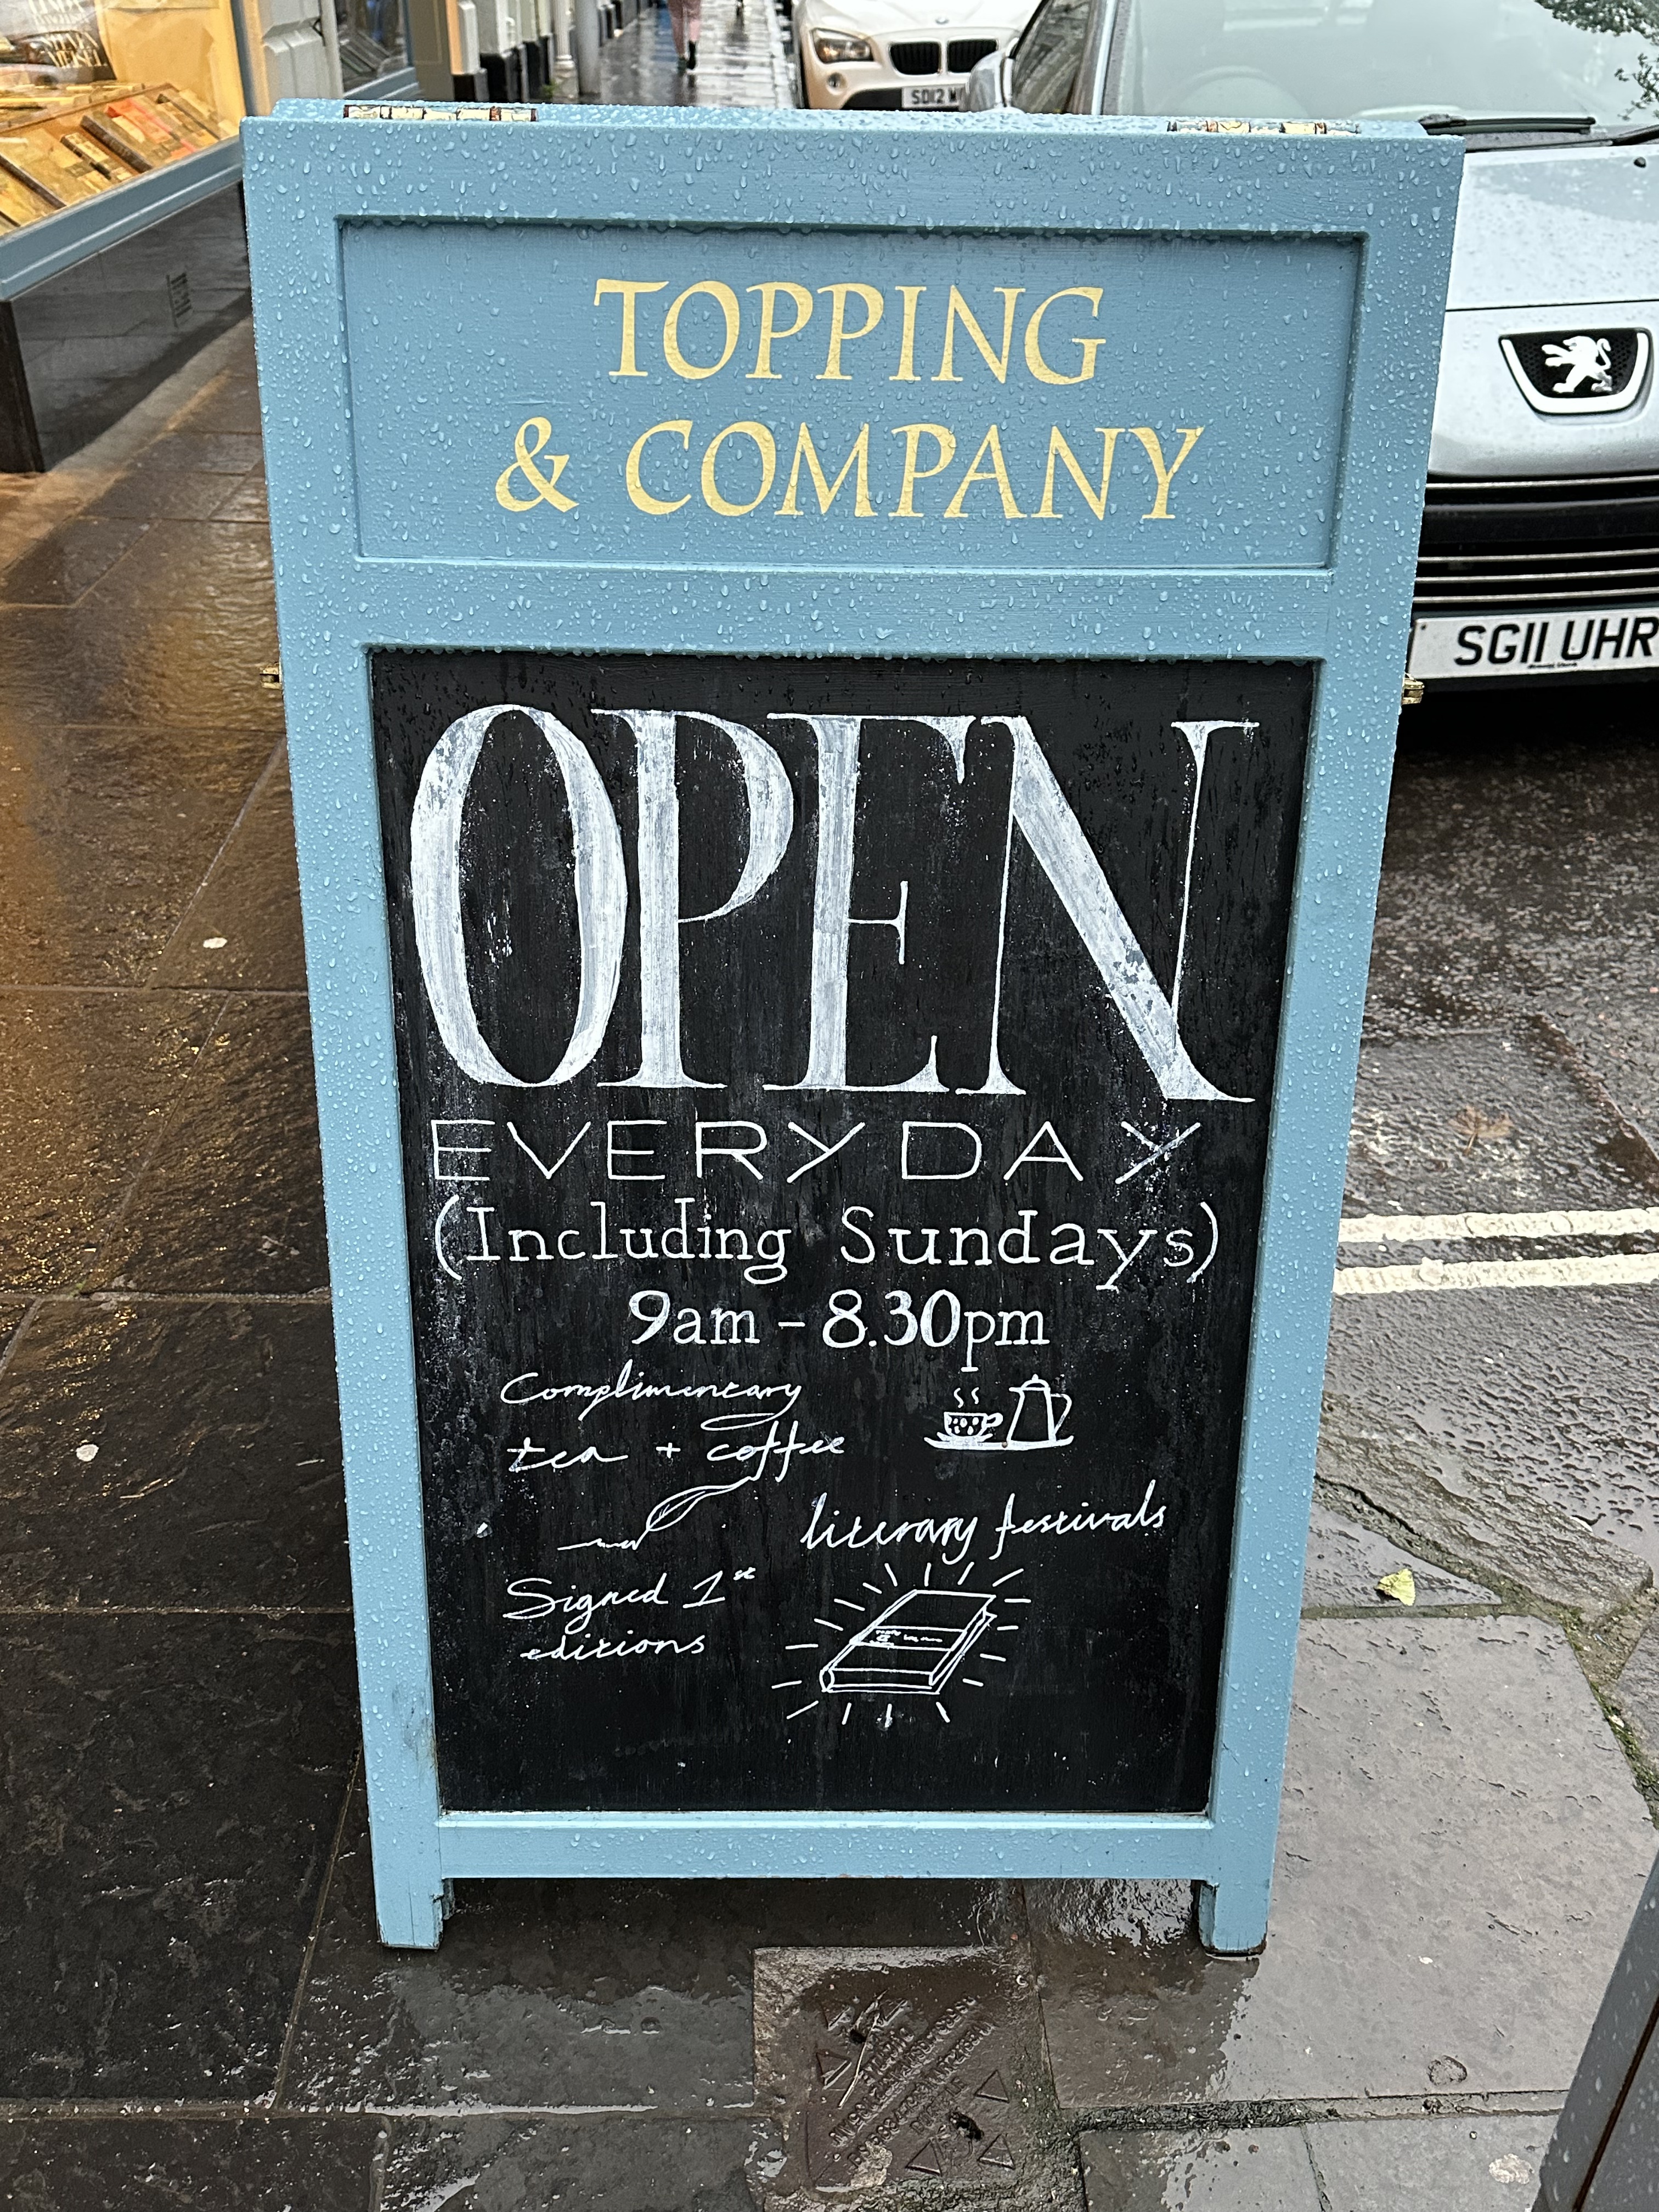 TOPPING
& COMPANY
OPEN
EVERYDAY
(Including Sundays)
9am - 8.30pm
Complimentary
tea + coffee
literary festivals
Signed 1st
editions
SG11 UHR
SD12